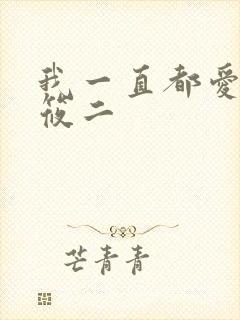 我一直都愛
筱二
芒青青